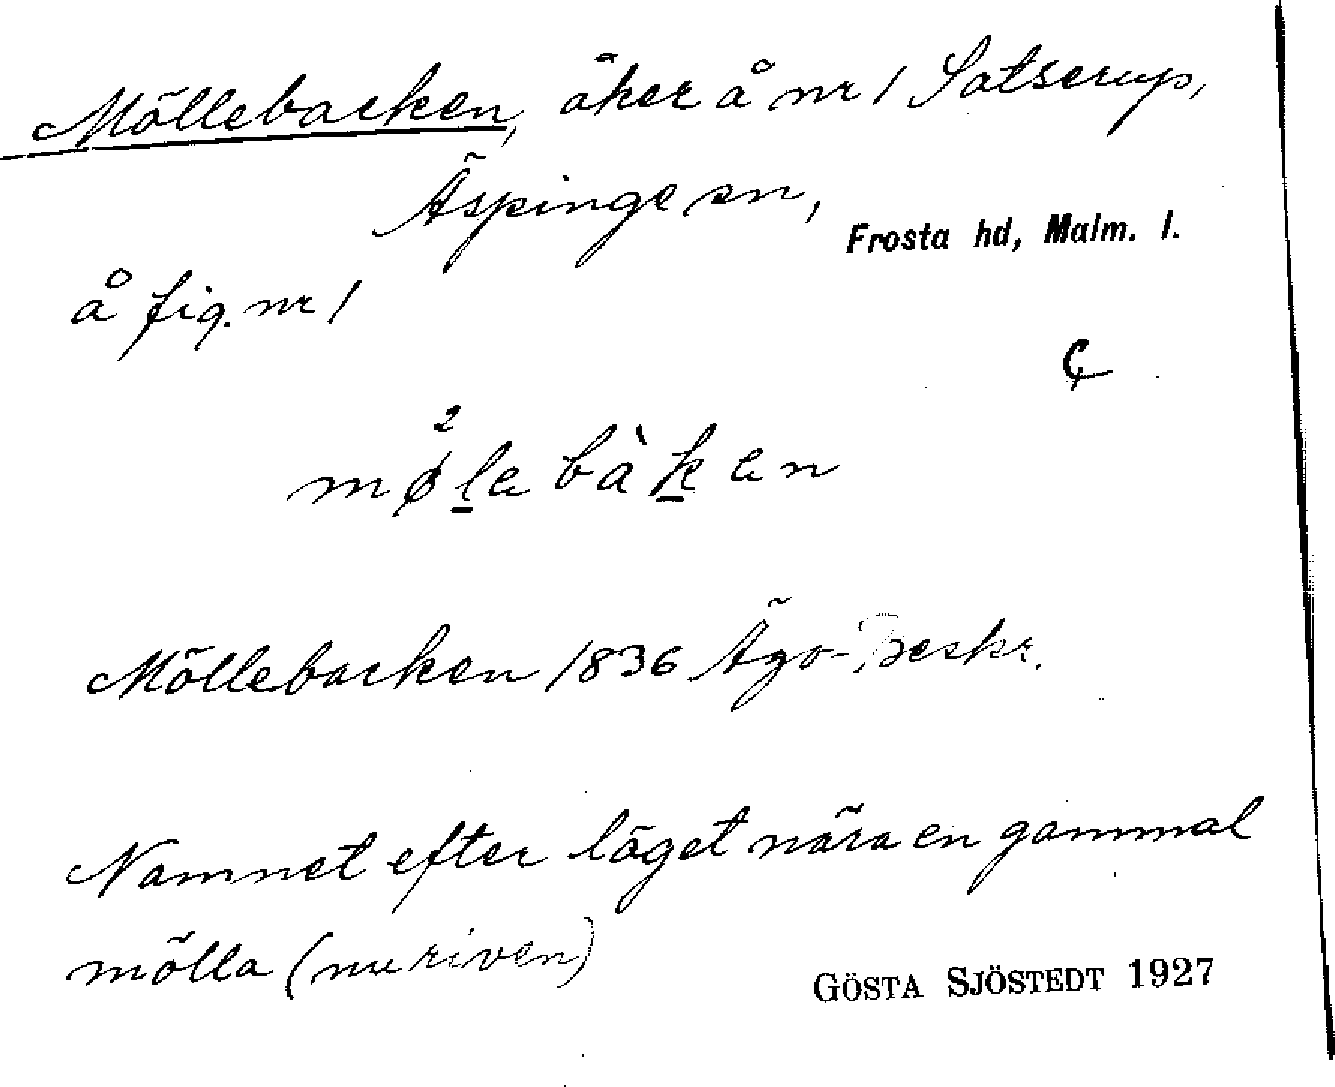 Möllebacken, åker å nr 1 Satserup,
Äspinge sn, Frosta hd, Malm. l.
å fig. nr 1
mølebàken
Möllebacken 1836 Ägo-Beskr.
Namnet efter läget nära en gammal
mölla (nu riven)
GÖSTA SJÖSTEDT 1927